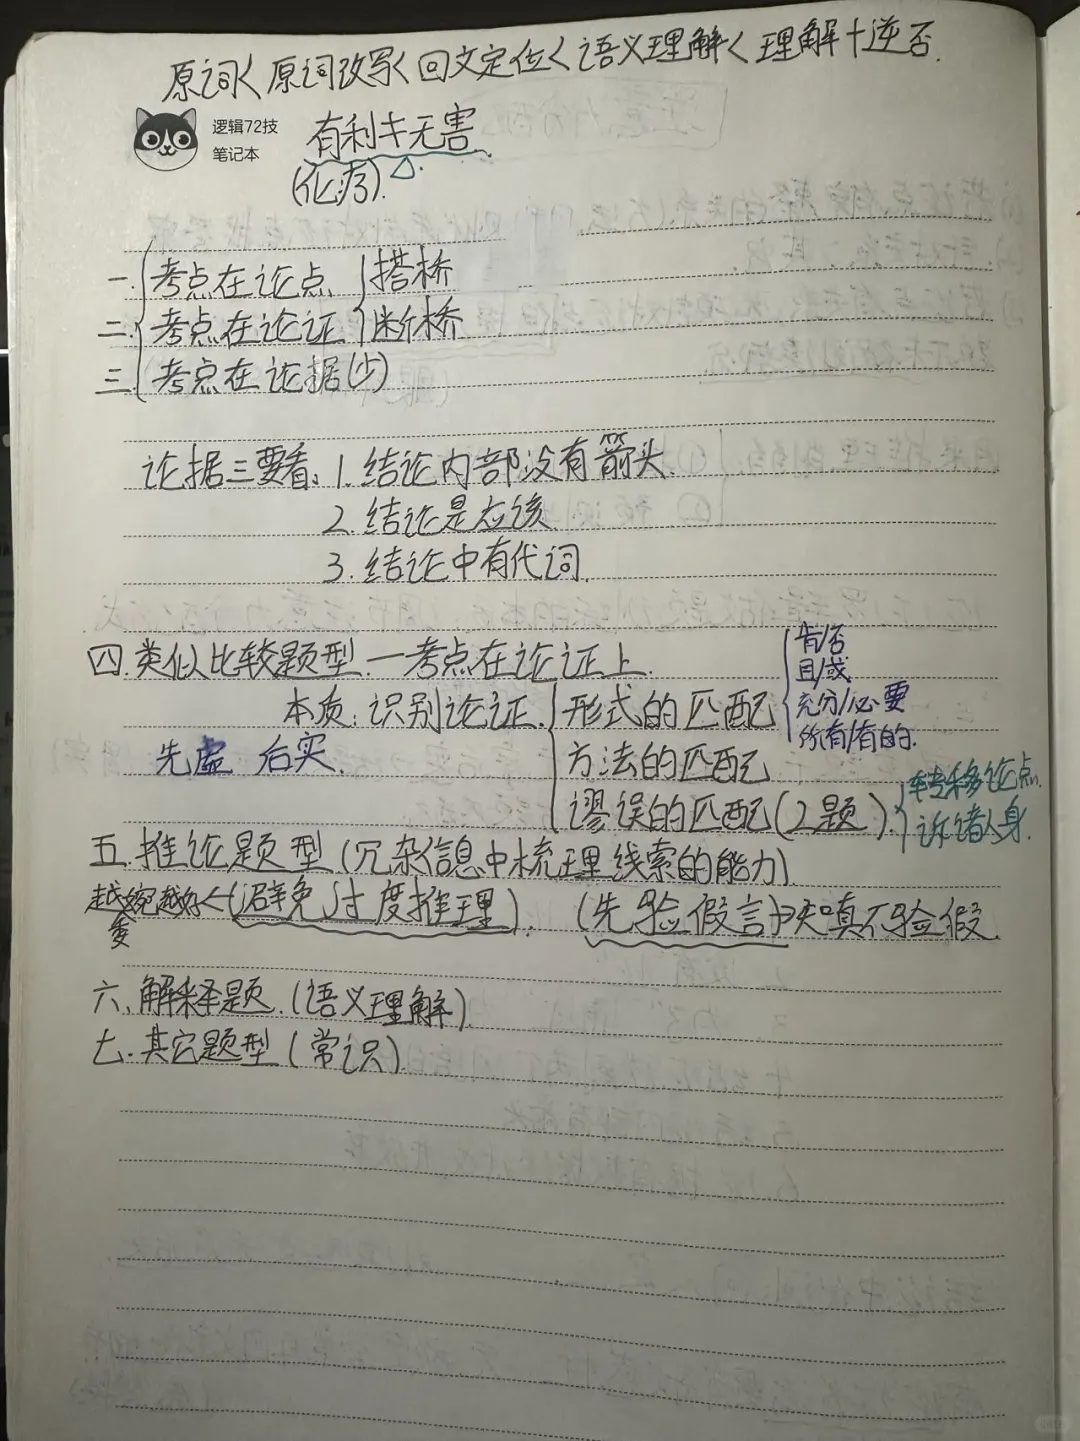 原词<原词改写<回文定位<语义理解<理解+逆否.
逻辑72技
笔记本
有利≠无害.
(化疗).
一. 考点在论点 搭桥
二. 考点在论证 断桥
三. 考点在论据(少)
论据三要看: 1. 结论内部没有箭头.
2. 结论是应该
3. 结论中有代词.
四. 类似比较题型 — 考点在论证上.
本质: 识别论证. 形式的匹配 肯/否
且/或
充分/必要
所有/有的.
先虚 后实. 方法的匹配
谬误的匹配(2题). 转移论点.
诉诸人身.
五. 推论题型(冗杂信息中梳理线索的能力)
越委婉越好<(避免过度推理). (先验假言)→只填不验假.
六. 解释题.(语义理解)
七. 其它题型(常识).